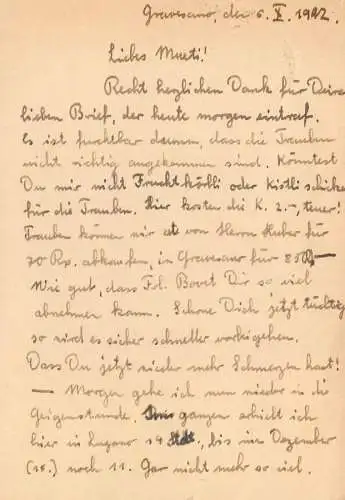 Gravesano, den 6. X. 1942.
Liebes Mueti!
Recht herzlichen Dank für Deinen
lieben Brief, der heute morgen eintraf.
Es ist furchtbar dumm, dass die Trauben
nicht richtig angekommen sind. Könntest
Du mir nicht Fruchtkörbli oder Kistli schicken
für die Trauben. Hier kosten die K. 2.–, teuer!
Trauben können wir von Herrn Huber für
70 Rp. abkaufen, in Gravesano für 85 Rp.
Wie gut, dass Frl. Bovet Dir so viel
abnehmen kann. Schone Dich jetzt tüchtig
so wird es sicher schneller vorbeigehen.
Dass Du jetzt wieder mehr Schmerzen hast!
— Morgen gehe ich nun wieder in die
Geigenstunde. ganzen erhielt ich
hier in Lugano 14 Std., bis im Dezember
(15.) noch 11. Gar nicht mehr so viel.